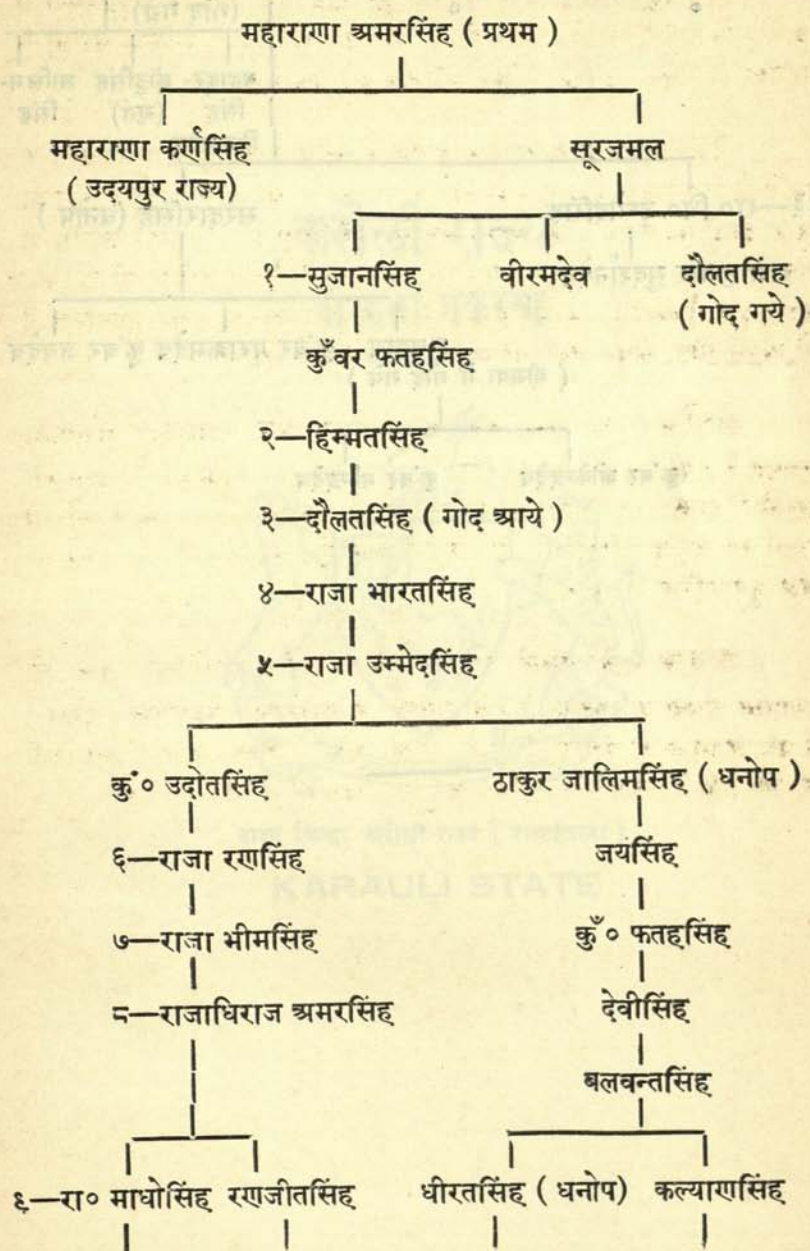 महाराणा अमरसिंह ( प्रथम )
महाराणा कर्णसिंह सूरजमल
( उदयपुर राज्य)
१—सुजानसिंह वीरमदेव दौलतसिंह
( गोद गये )
कुँवर फतहसिंह
२—हिम्मतसिंह
३—दौलतसिंह ( गोद आये )
४—राजा भारतसिंह
५—राजा उम्मेदसिंह
कुँ० उदोतसिंह ठाकुर जालिमसिंह ( धनोप )
६—राजा रणसिंह जयसिंह
७—राजा भीमसिंह कुँ० फतहसिंह
८—राजाधिराज अमरसिंह देवीसिंह
बलवन्तसिंह
९—रा० माधोसिंह रणजीतसिंह धीरतसिंह ( धनोप) कल्याणसिंह
KARAULI STATE